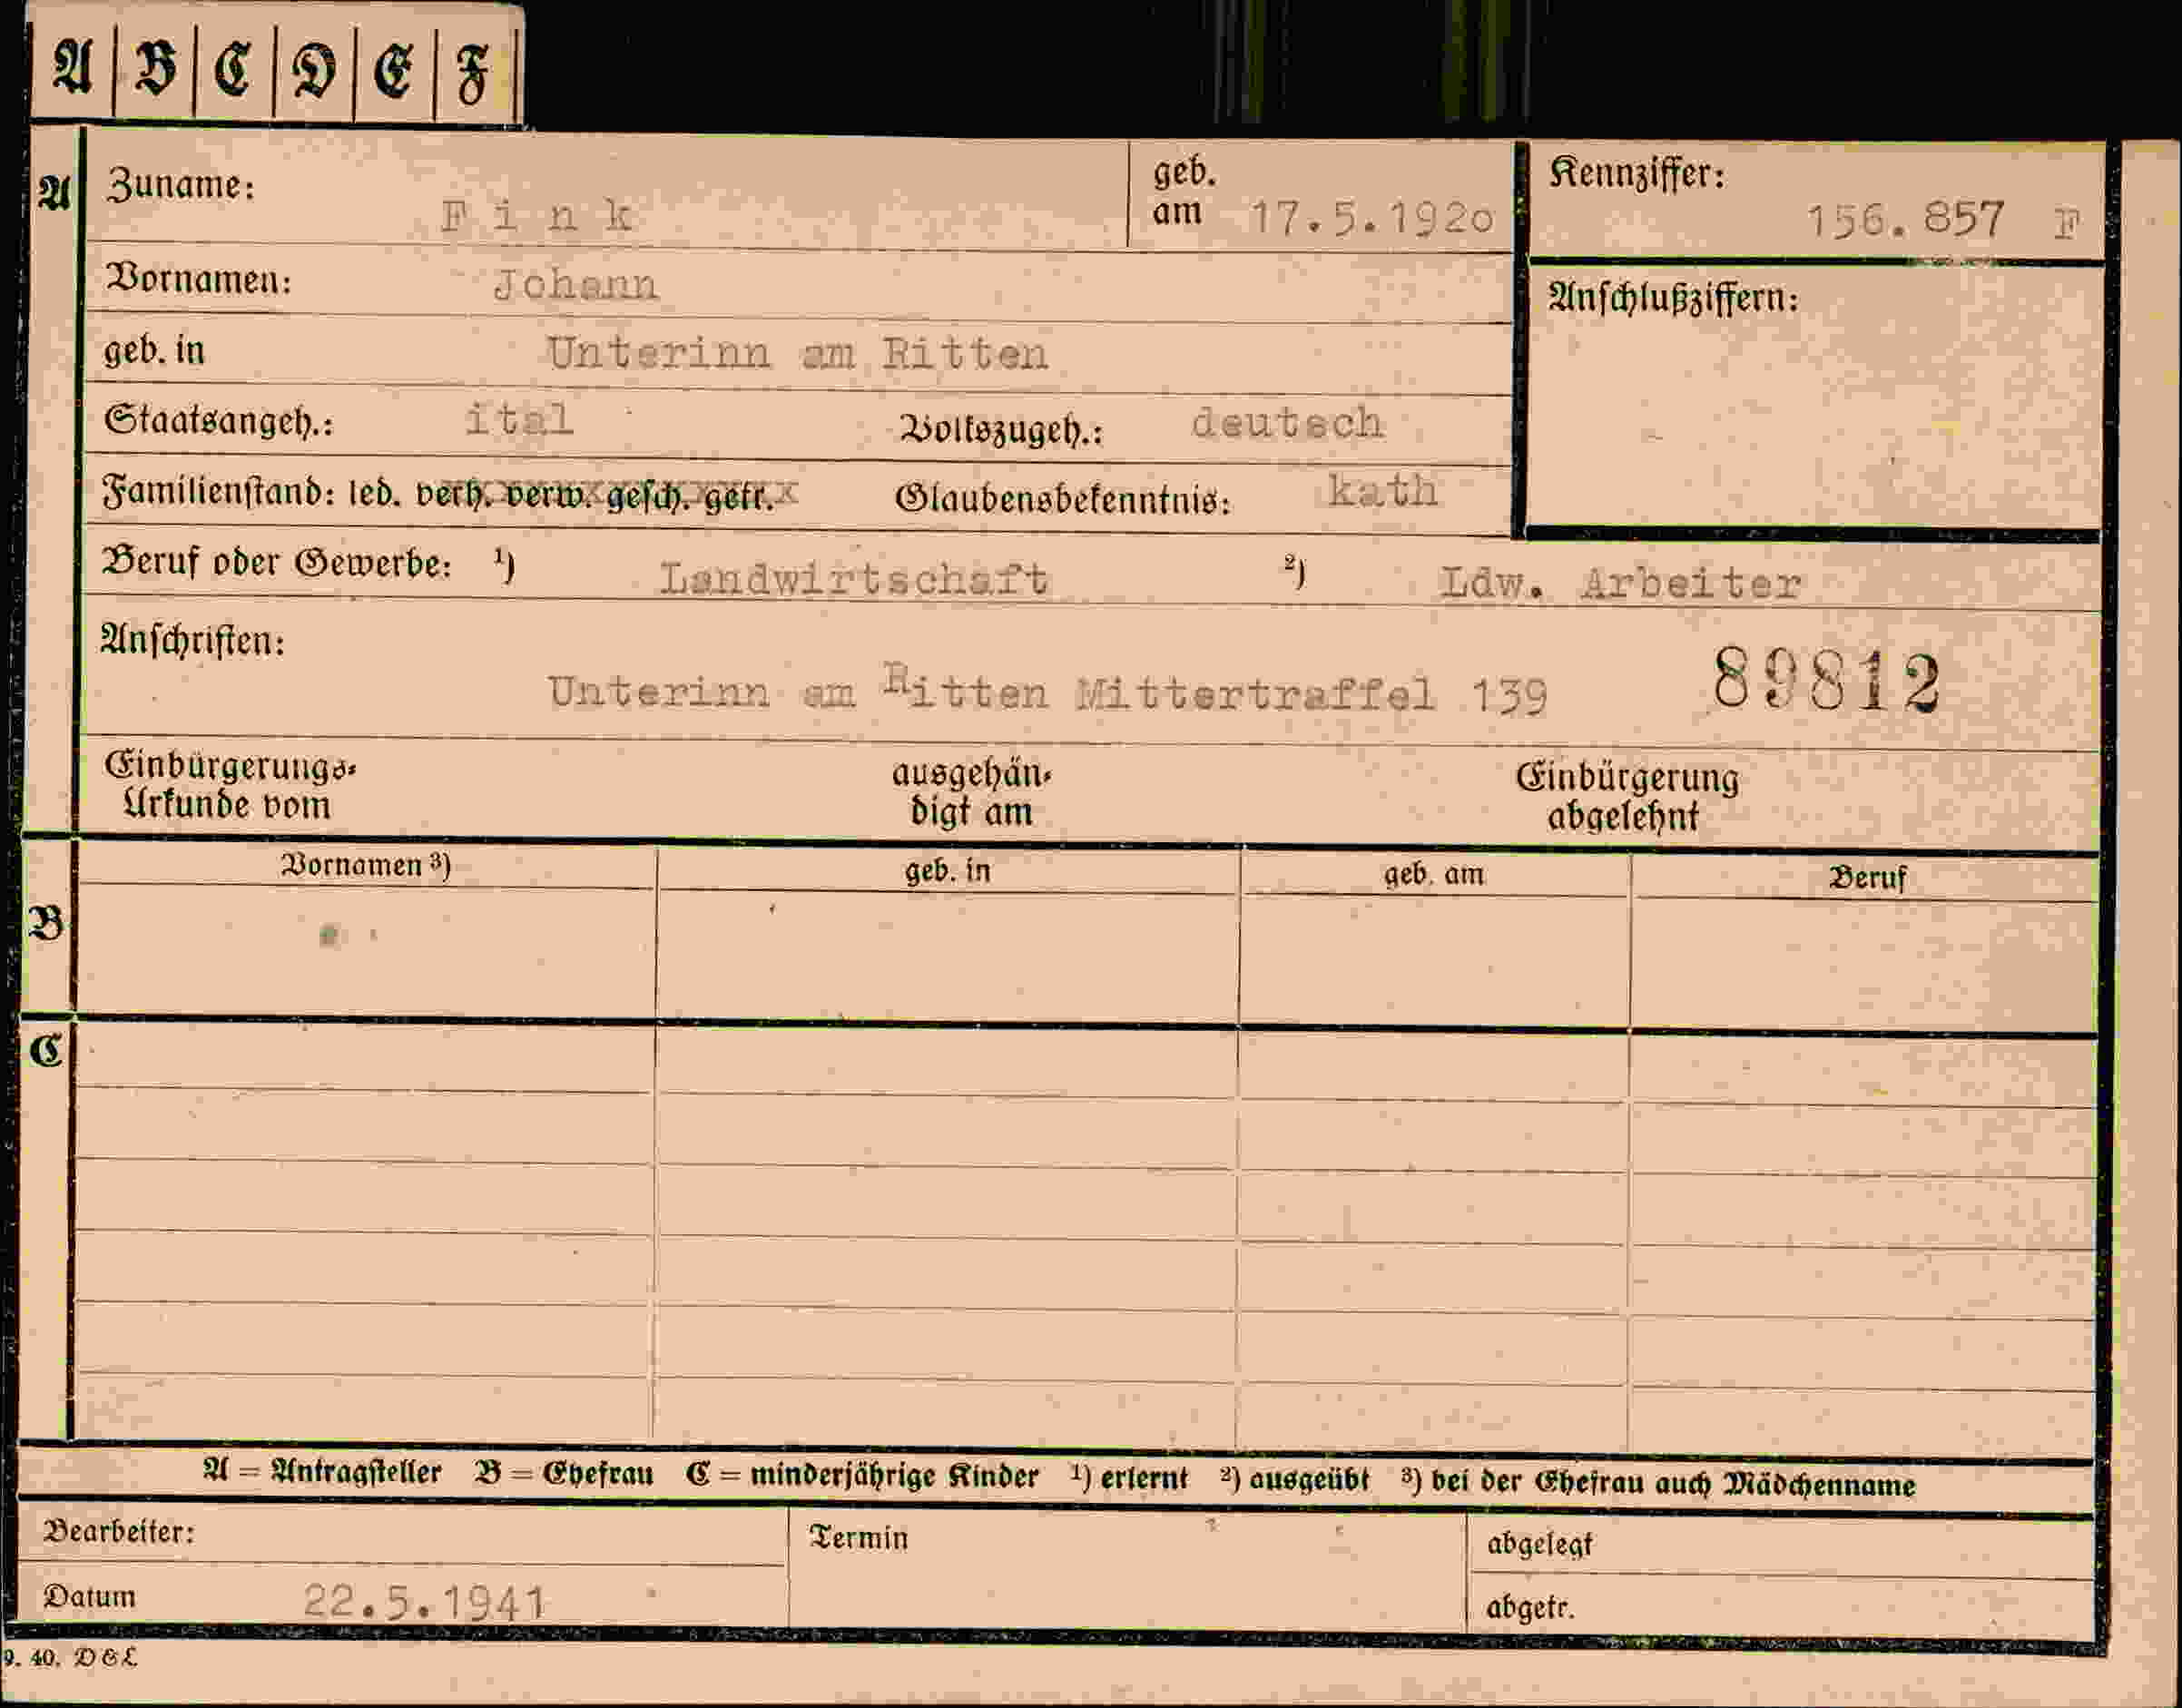 A B C D E F
A Zuname: Fink geb. am 17.5.1920 Kennziffer: 156.857 F
Vornamen: Johann Anschlußziffern:
geb. in Unterinn am Ritten
Staatsangeh.: ital Volkszugeh.: deutsch
Familienstand: led. verh. verw. gesch. getr. Glaubensbekenntnis: kath
Beruf oder Gewerbe: 1) Landwirtschaft 2) Ldw. Arbeiter
Anschriften:
Unterinn am Ritten Mittertraffel 139 89812
Einbürgerungs-
Urkunde vom
ausgehän-
digt am
Einbürgerung
abgelehnt
Vornamen 3) geb. in geb. am Beruf
B
C
A = Antragsteller B = Ehefrau C = minderjährige Kinder 1) erlernt 2) ausgeübt 3) bei der Ehefrau auch Mädchenname
Bearbeiter: Termin abgelegt
Datum 22.5.1941 abgetr.
9. 40. D&L